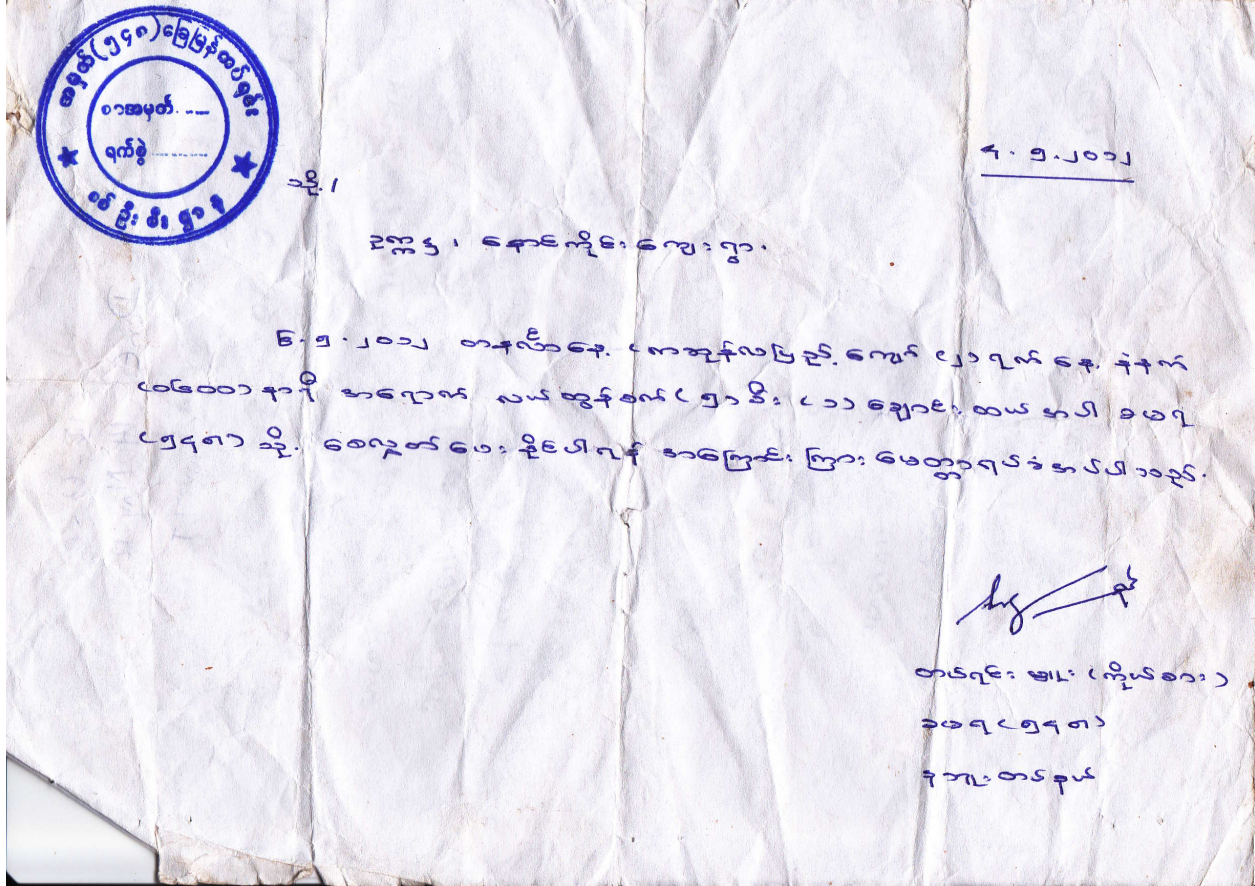 အမှတ်(၅၄၈)ခြေမြန်တပ်ရင်း
စာအမှတ်. ....
ရက်စွဲ ............
စစ်ဦးစီးဌာန
၄.၅.၂၀၁၂
သို့/
ဥက္ကဋ္ဌ၊ နောင်ကိုင်းကျေးရွာ.
၆.၅.၂၀၁၂ တနင်္လာနေ့ (ကဆုန်လပြည့်ကျော် (၂) ရက်နေ့ နံနက်
(၀၆၀၀) နာရီ အရောက် လယ်ထွန်စက် (၅) စီး (၁) ချောင်းထယ် အပါ ခမရ
(၅၄၈) သို့ စေလွှတ်ပေးနိုင်ပါရန် အကြောင်းကြား မေတ္တာရပ်ခံအပ်ပါသည်.
တပ်ရင်းမှူး (ကိုယ်စား)
ခမရ (၅၄၈)
နဘူးတပ်နယ်